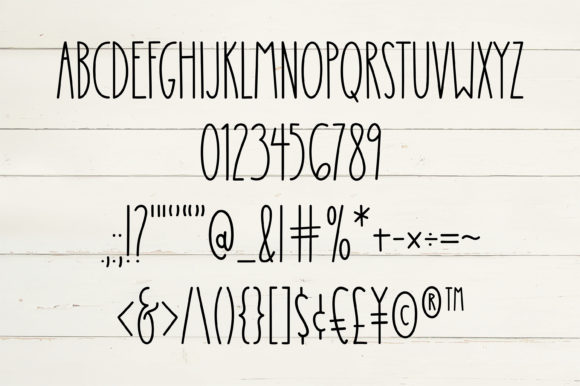 ABCDEFGHIJKLMNOPQRSTUVWXYZ
0123456789
.,:;!?"'“‘’”@_&|#%*+-×÷=~
<&>/\(){}[]$¢€£¥©®™